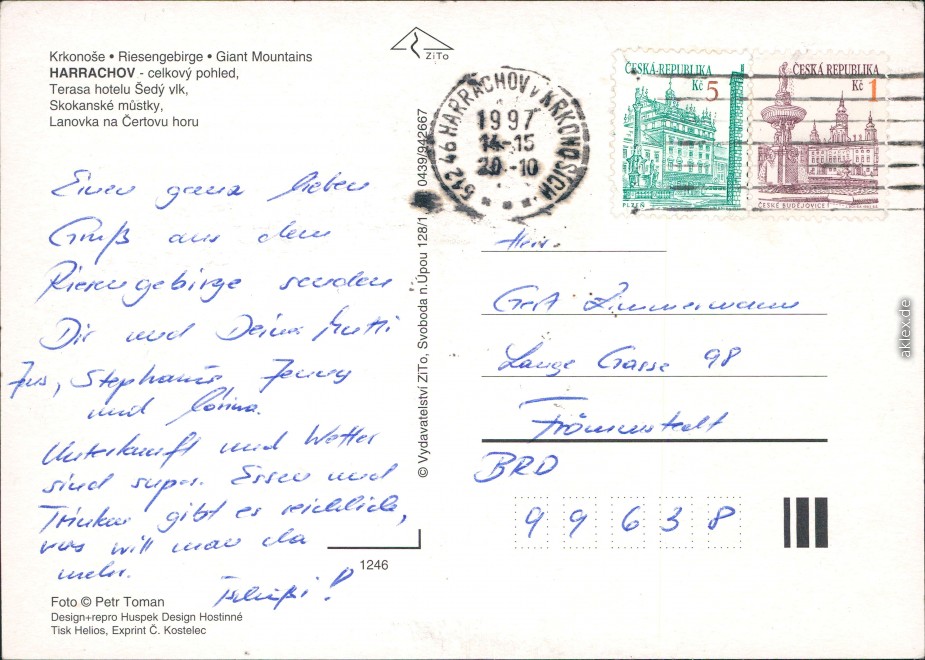 Krkonoše • Riesengebirge • Giant Mountains
HARRACHOV - celkový pohled,
Terasa hotelu Šedý vlk,
Skokanské můstky,
Lanovka na Čertovu horu
ZiTo
512 46 HARRACHOV v KRKONOŠÍCH
1997
14-15
20.-10
ČESKÁ REPUBLIKA
Kč 5
PLZEŇ
ČESKÁ REPUBLIKA
Kč 1
ČESKÉ BUDĚJOVICE
Einen ganz lieben
Gruß aus dem
Riesengebirge senden
Dir und Deine Mutti
Stephanie Jenny
und
Unterkunft und Wetter
sind super. Essen und
Trinken gibt es reichlich,
was will man da
mehr.
Tschüßi!
© Vydavatelství ZiTo, Svoboda n.Úpou 128/1, 0439/942667
Herr
Gert Zimmermann
Lange Gasse 98
Frömmstedt
BRD
99638
1246
Foto © Petr Toman
Design+repro Huspek Design Hostinné
Tisk Helios, Exprint Č. Kostelec
aklex.de